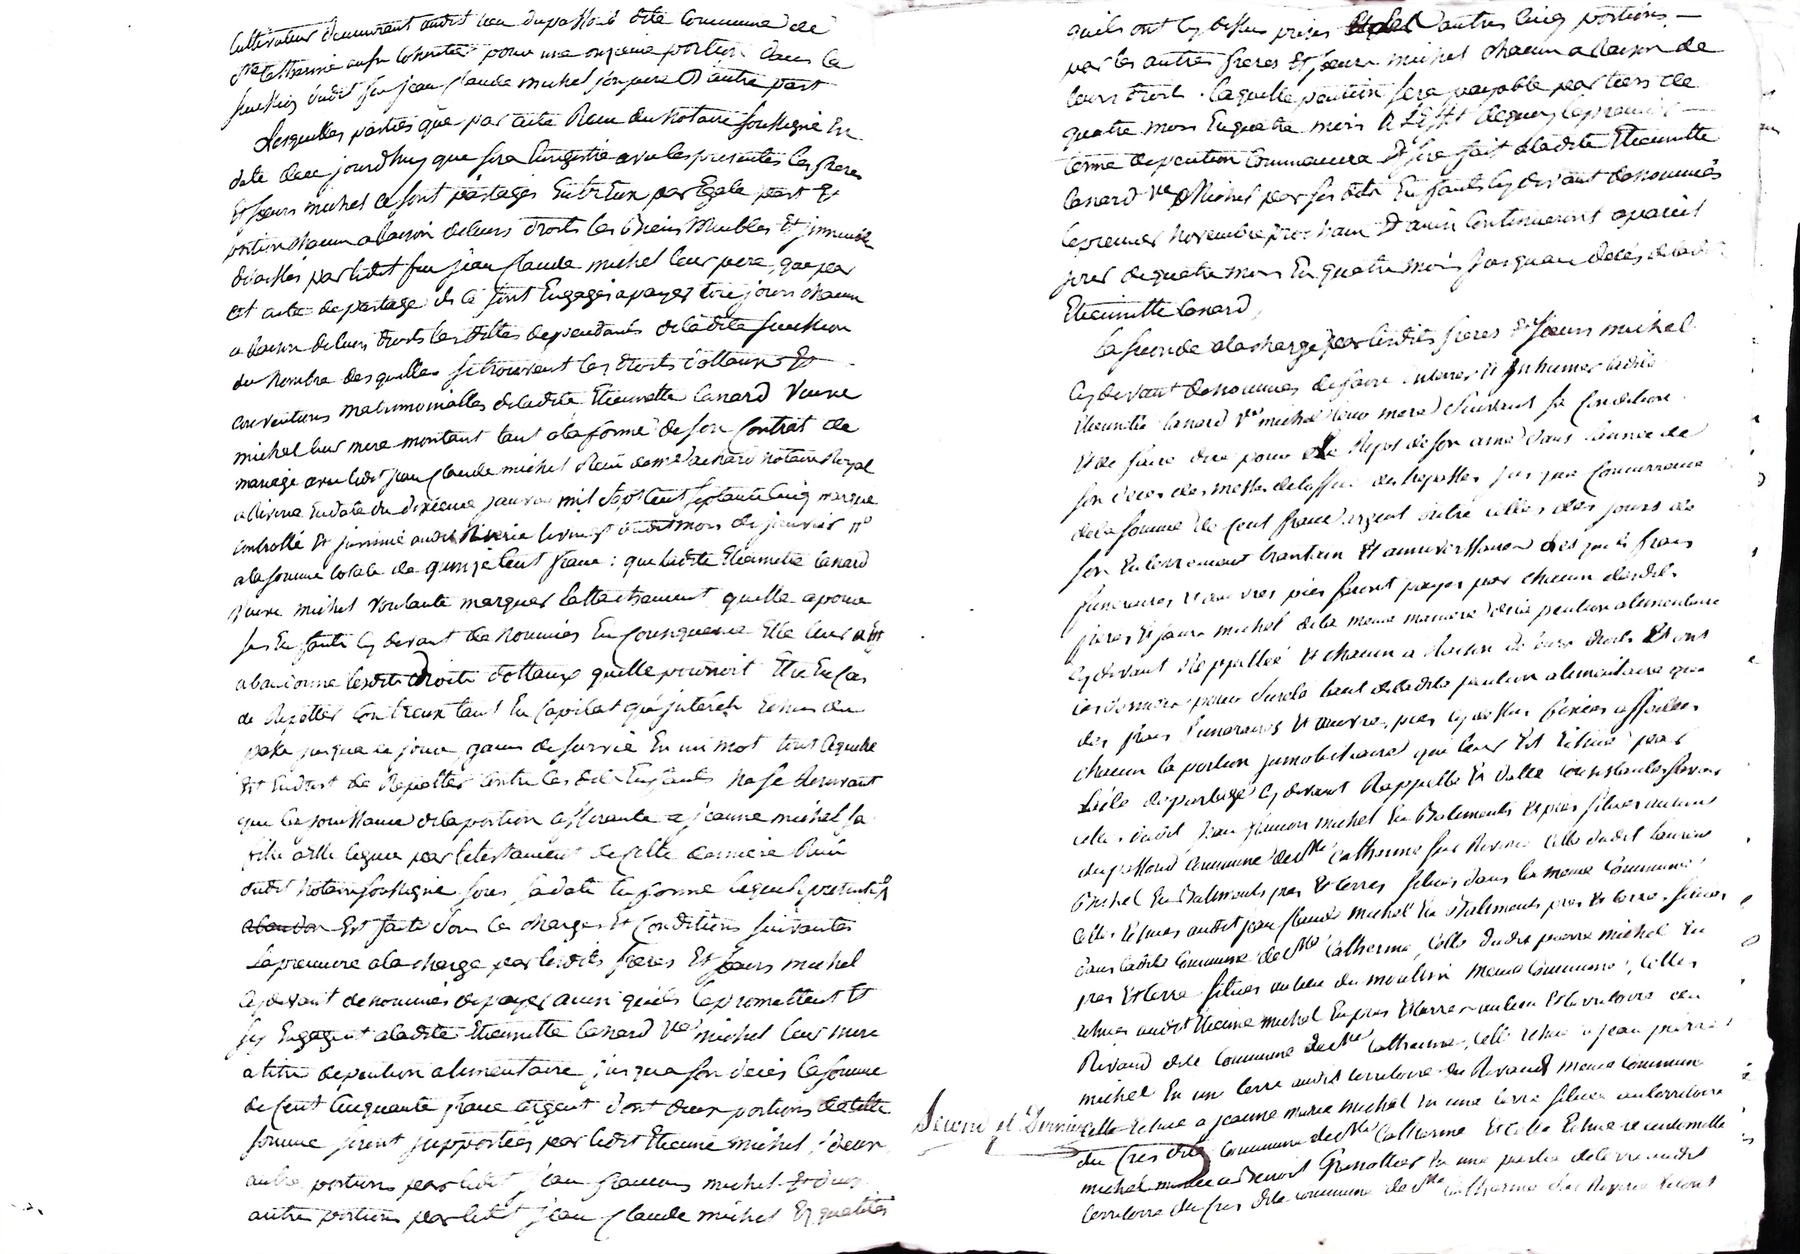 Cultivateur demeurant audit lieu du passoud dite Commune de
Ste Catherine aussi heritier pour une onzieme portion dans la
succession dudit feu jean Claude michel son pere d'autre part
Lesquelles parties que par acte Recu du Notaire soussigné En
date de ce jourdhuy que sera Enregistré avec les presentes les freres
Et soeurs michel ce sont partages Entr'Eux par Egale part Et
portion chacun a raison de leurs droits les biens Meubles Et jmmeubles
delaissés par ledit feu jean Claude michel leur pere, que par
cet acte de partage ils ce sont Engagés a payer toujours chacun
a raison de leurs droits les dettes dependantes de ladite succession
du Nombre des quelles se trouvent les droits dottaux Et
conventions matrimonialles de ladite Etiennette Canard Veuve
michel leur mere montant tant a la forme de son Contrat de
mariage avec ledit jean Claude michel Recu de me achard notaire Royal
a Riverie En date du dixieme janvier mil sept cent septante cinq marque
controllé Et jnsinué audit Riverie le vingt dudit mois de janvier
a la somme totale de quinze Cent franc : que ladite Etiennette Canard
veuve michel Voulante marquer L'attachement quelle a pour
ses Enfants cy devant de Nommés En Consequence Elle leur
abandonne lesdits droits dottaux quelle pourroit Etre En Cas
de Repetter Contr'eux tant En Capital qu'jnterets Echus du
passé jusqua ce jour, gains de survie En un mot tout ce quelle
Est En droit de Repetter Contre ces dits Enfants Ne se Reservant
que la jouissance de la portion afferante a jeanne michel sa
fille a Elle leguée par le testament de cette derniere Recu
dudit Notaire soussigné sous sa date En forme Laquelle presente
abandon Est faite sous les charges Et Conditions suivantes
La premiere a la charge par lesdits freres Et soeurs michel
cy devant denommés de payer ainsi quils le promettent Et
sy Engagent a ladite Etiennette Canard Ve michel leur mere
a titre de pention alimentaire, jusqua son deces la somme
de Cent Cinquante franc argent dont deux portions de cette
somme seront supportées par ledit Etienne michel, deux
autre portions par ledit jean francois michel Et deux
autre portions par ledit jean Claude michel Es qualités
quils ont cy dessus prises autres Cinq portions
par les autres freres Et soeurs michel chacun a Raison de
leurs droits. Laquelle pention sera payable par tiers de
quatre mois En quatre mois dequoy le premier
terme de pention Commencera Et sera fait a ladite Etiennette
Canard Ve Michel par ses dits Enfants cy devant denommés
le premier Novembre prochain Et ainsi Continueront a pareil
jour de quatre mois En quatre mois jusquau deces de ladite
Etiennette Canard,
La seconde a la charge par lesdits freres Et soeurs michel
cy devant denommés de faire Enterrer Et Jnhumer ladite
Etiennette Canard Ve michel leur mere suivant sa Condition
Et de faire dire pour le Repos de son ame dans l'année de
son deces des messes de l'office des trepassés jusqua Concurrence
de la somme de Cent franc argent outre celles des jours de
son Enterrement trantain Et anniverssaire des quels frais
funeraires Et oeuvres pies seront payés par chacun desdits
freres Et soeurs michel de la meme maniere que la pention alimentaire
cy devant Rappellée Et chacun a Raison de leurs droits Et ont
ces derniers pour sureté tant de ladite pention alimentaire que
des frais funeraires Et oeuvres pies cy dessus fixés affectés
chacun la portion jmmobiliaire que leur Est Echue par
L'acte de partage cy devant Rappellé Et datté Consistante savoir
celle dudit jean francois michel En Batiments Et prés situés au lieu
du passoud Commune de Ste Catherine sur Riverie Celle dudit laurent
michel En Batiments prés Et terres situés dans la meme Commune
Celle Echues audit jean Claude michel En Batiments prés Et terre situés
dans ladite Commune de Ste Catherine, Celle dudit pierre michel En
prés Et terre situés au lieu du moulin meme Commune, Celles
echues audit Etienne michel En prés Et terres au lieu Et territoire du
Rivaud dite Commune de Ste Catherine, Celle echue a jean pierre
michel En une terre audit territoire du Rivaud meme Commune
Celle Echue a jeanne marie michel En une terre située au territoire
du Cres dite Commune de Ste Catherine Et Celle Echue a
michel mariée a Benoit Grenottier En une partie de terre audit
territoire du Cres dite commune de Ste Catherine sur Riverie
Second et Dernier